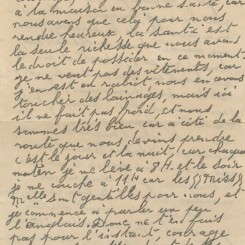 à la maison en bonne santé, car
nous avons que cela pour nous
rendre heureux la santé est
la seule richesse que nous avons
le droit de posséder en ce moment.
je ne veut pas des vêtements, car
l'on est on nous en avons
toucher des lainages, mais ici
il ne fait pas froid, et nous
sommes très bien car a côté de la
route que nous, devins prendre
c'est le jour et la nuit, car chaque
maten je me lève a 8H. et le soir
je me couche a 11H car les
Mlle sont gentilles pour nous, et
je commence a parler un peu
l'anglais. Donc ne t'en fais
pas pour l'instant, courage